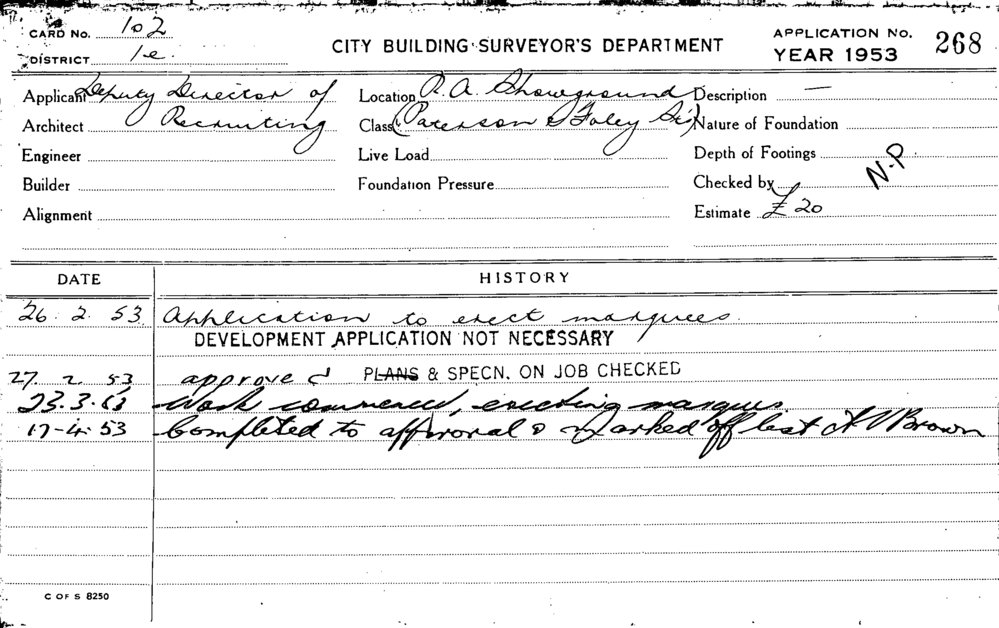 CARD No. 102
DISTRICT 1e.
CITY BUILDING SURVEYOR'S DEPARTMENT
APPLICATION No. 268
YEAR 1953
Applicant Deputy Director of
Architect Recruiting
Engineer
Builder
Alignment
Location R.A. Showground
Class (Paterson & Foley Sts)
Live Load
Foundation Pressure
Description —
Nature of Foundation
Depth of Footings
Checked by N.P
Estimate £20
DATE HISTORY
26. 2. 53 Application to erect marquees.
DEVELOPMENT APPLICATION NOT NECESSARY
27. 2. 53 approved PLANS & SPECN. ON JOB CHECKED
23.3.53 Work commenced, erecting marques.
17-4.53 Completed to approval & Marked off last Brown
C OF S 8250